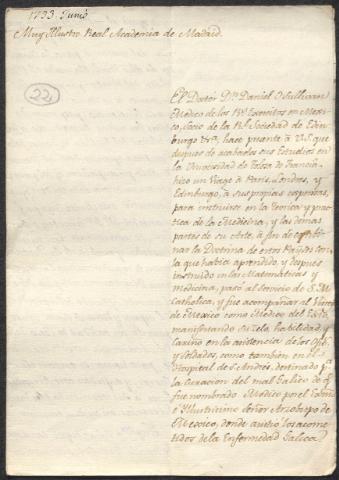 1793 Junio
Muy Illustre Real Academia de Madrid.
22
El Doctor Dn. Daniel Osullivan
Medico de los Rs. Exercitos en Mexi-
co, Socio de la Rl. Sociedad de Edim-
burgo &a., hace presente à V.S. que
despues de acabados sus Estudios en
la Universidad de Tolosa de Francia
hizo un Viage à Paris, Londres, y
Edimburgo, à sus propias expensas,
para instruirse en la teorica y prac-
tica de la Medicina, y las demas
partes de su Arte, à fin de
nar la Doctrina de estos Paises con
la que habia aprendido, y despues
instruido en las Matematicas y
medicina, pasó al servicio de S. M.
Catholica, y fue acompañar al Virrey
de Mexico como Medico del
manifestando su zelo, habilidad, y
cariño en la asistencia de los
y Soldados, como tambien en el
Hospital de Sn. Andres, destinado pa.
la Curacion del mal Galico de q.
fue nombrado Medico por el
è Illustrisimo Señor Arzobispo de
Mexico, donde los acome-
tidos de la Enfermedad Galica